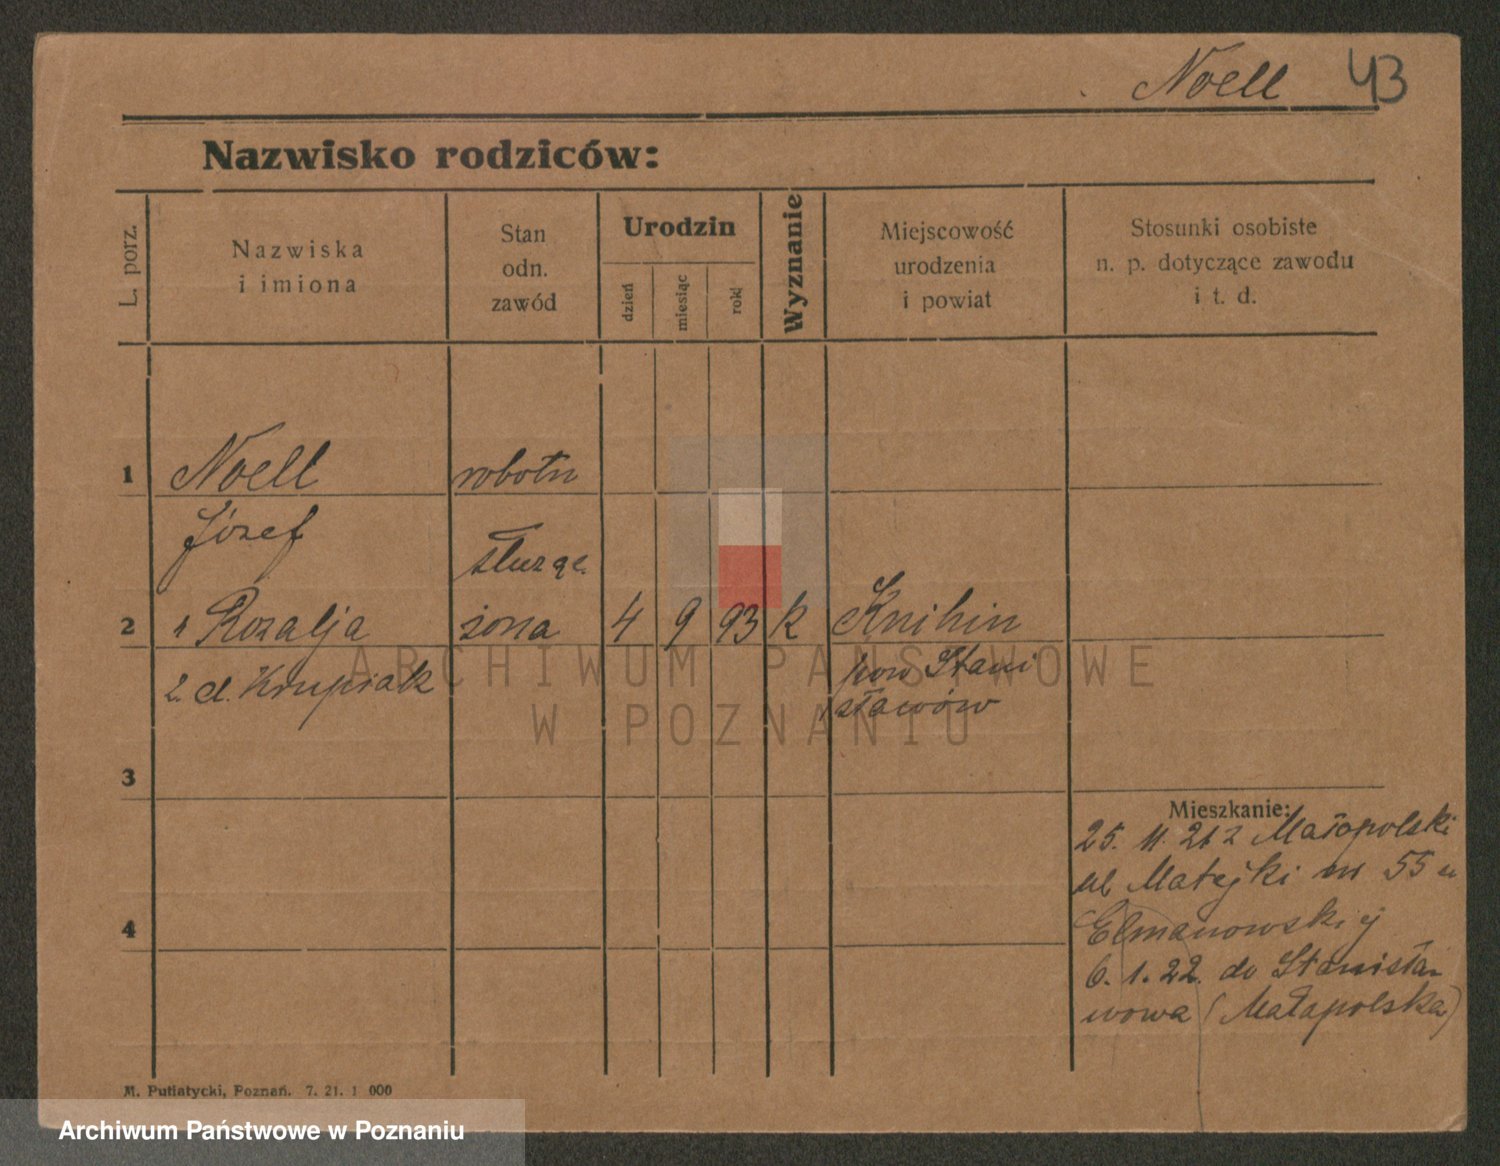 Noell 43
Nazwisko rodziców:
L. porz.
Nazwiska
i imiona
Stan
odn.
zawód
Urodzin
dzień
miesiąc
rok
Wyznanie
Miejscowość
urodzenia
i powiat
Stosunki osobiste
n. p. dotyczące zawodu
i t. d.
1 Noell robotn
Józef
służąc.
2 1 Rozalja żona 4 9 93 k Knihin
2. d. Krupiak pow Stani
sławów
3
Mieszkanie:
25. 11. 21 z Małopolski
ul Matejki nr 55 u
Elmanowskiej
4
6. 1. 22. do Stanisła-
wowa (Małapolska)
M. Putiatycki, Poznań. 7. 21. 1 000
ARCHIWUM PAŃSTWOWE
W POZNANIU
Archiwum Państwowe w Poznaniu